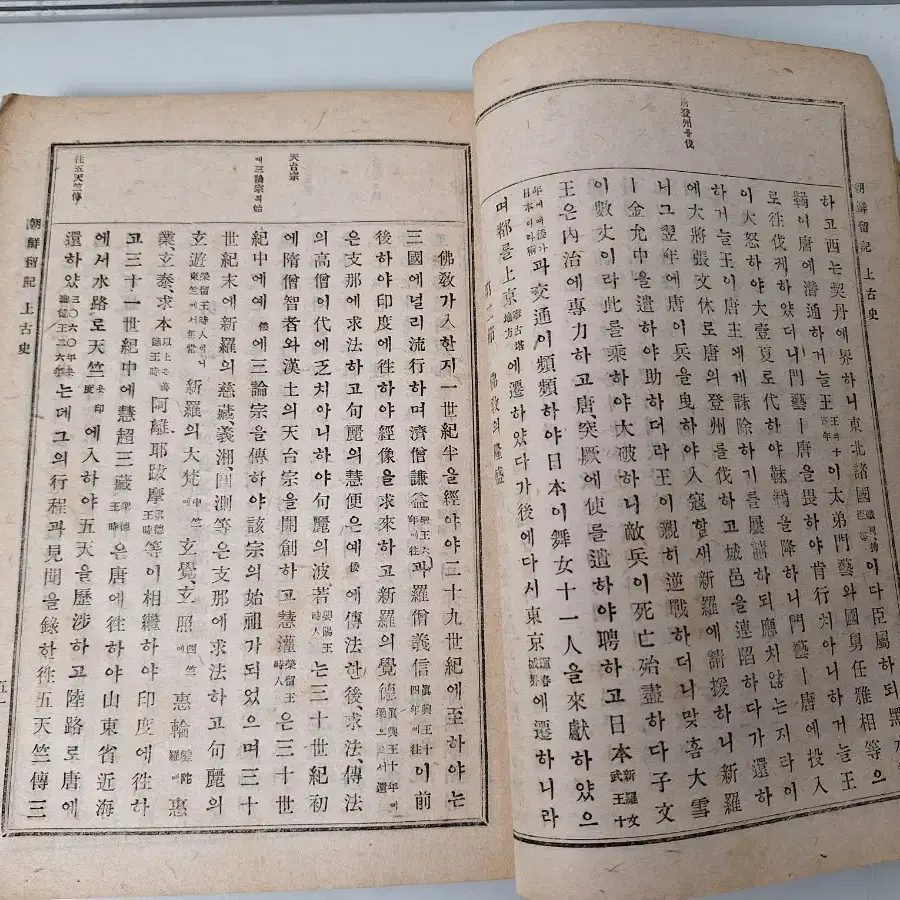 朝鮮留記 上古史
唐登州를伐
하고西는契丹에界하니東北諸國이다臣屬하되黑
羯이唐에潛通하거늘王이太弟門藝와國舅任雅相等으
로往伐케하얏더니門藝ㅣ唐을畏하야肯行치아니하거늘王
이大怒하야大壹夏로代하야靺鞨을降하니門藝ㅣ唐에投入
하거늘王이唐主에게誅除하기를屢請하되應치않는지라이
에大將張文休로唐의登州를伐하고城邑을連陷하다가還하
니그翌年에唐이兵을曳하야入寇할새新羅에請援하니新羅
ㅣ金允中을遣하야助하더라王이親히逆戰하더니맞홈大雪
이數丈이라此를乘하야大破하니敵兵이死亡殆盡하다子文
王은內治에專力하고唐、突厥에使를遣하야聘하고日本新羅文武王十
年에倭가日本이라稱과交通이頻頻하야日本이舞女十一人을來獻하얏으
며都를上京寧古塔地方에遷하얏다가後에다시東京琿春城界에遷하니라
第二節 佛敎의隆盛
佛敎가入한지一世紀半을經하야二十九世紀에至하야는
三國에널리流行하며濟僧謙益聖王六年에往과羅僧義信眞興王十四年에往이前
後하야印度에往하야經像을求來하고新羅의覺德眞興王十年에梁으로서還
은支那에求法하고句麗의慧便은예倭에傳法한後、求法、傳法
의高僧이代에乏치아니하야句麗의波若嬰陽王時人는三十世紀初
에隋僧智者와漢土의天台宗을開創하고慧灌榮留王時人은三十世
紀中에예倭에三論宗을傳하야該宗의始祖가되었으며三十
世紀末에新羅의慈藏、義湘、圓測等은支那에求法하고句麗의
玄遊榮留王時人에서東竺에常、新羅의大梵中竺에玄覺、玄照西竺惠輪에惠
業、玄泰、求本以上은善德王時阿離耶跋摩眞德王時等이相繼하야印度에往하
고三十一世紀中에慧超三藏聖德王時은唐에往하야山東省近海
에서水路로天竺곳印度에入하야五天을歷涉하고陸路로唐에
還하얏는데그의行程과見聞을錄하야往五天竺傳三
天台宗
에三論宗의始
往五天竺傳
朝鮮留記 上古史
五一